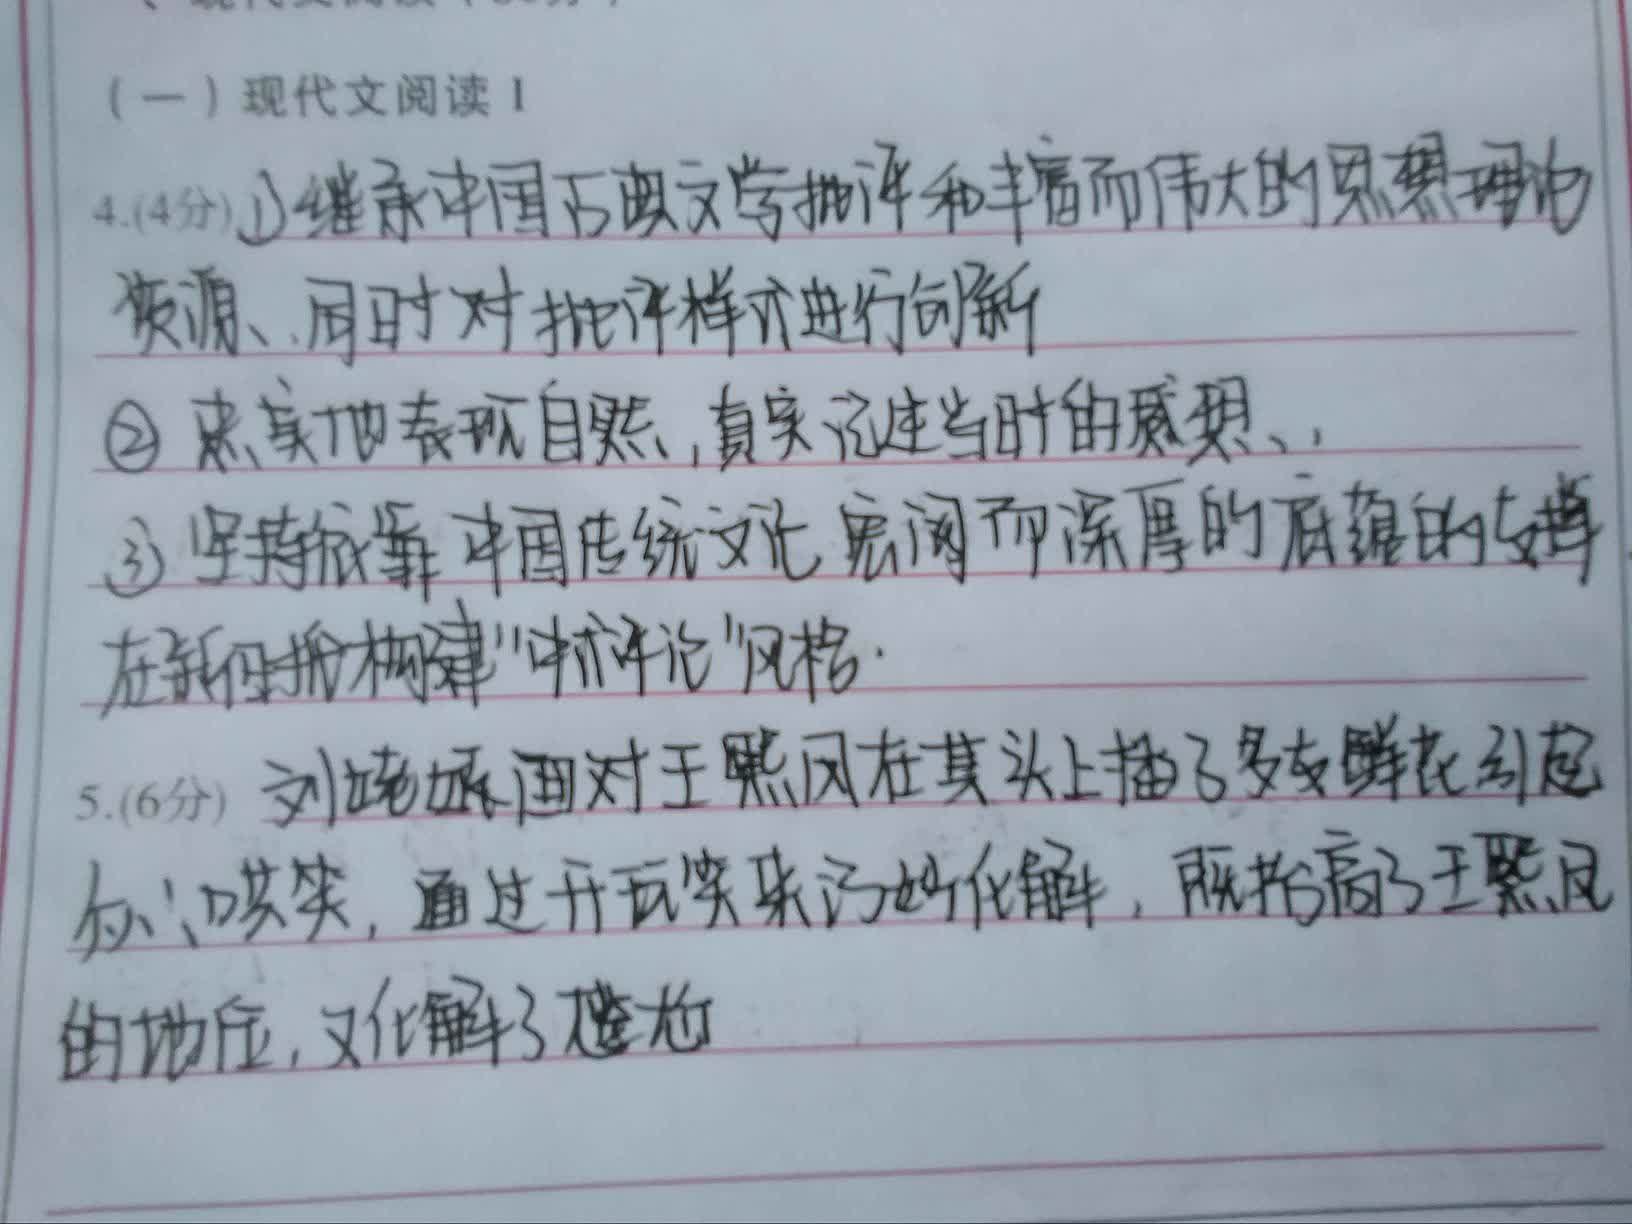 (一)现代文阅读 I
4.(4分)①继承中国古典文学批评和丰富而伟大的思想理论
资源、同时对批评样式进行创新
②忠实地表现自然,真实记述当时的感想、,
③坚持依靠中国传统文化宏阔而深厚的底蕴的支撑
在新保护构建"中式评论"风格.
5.(6分)刘姥姥面对王熙凤在其头上插了多支鲜花引起
众人哄笑,通过开玩笑来巧妙化解,既抬高了王熙凤
的地位,又化解了尴尬